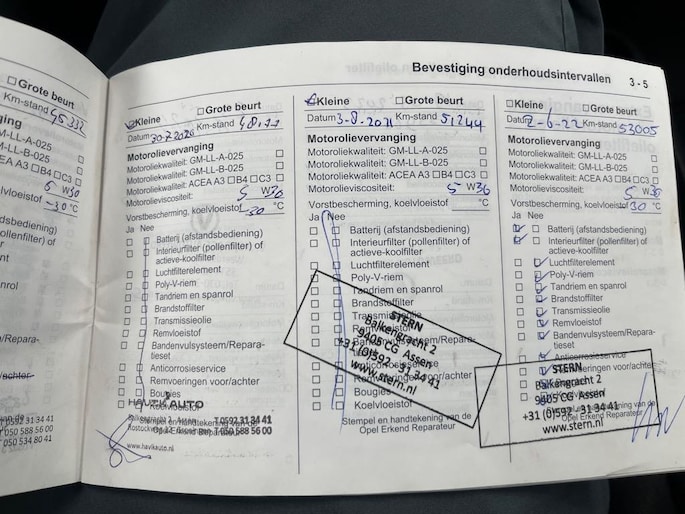 Bevestiging onderhoudsintervallen 3 - 5
Grote beurt
Km-stand 45332
GM-LL-A-025
GM-LL-B-025
ACEA A3 B4 C3
5 W30
koelvloeistof -30 °C
T 0592 31 34 41
T 050 588 56 00
T 050 534 80 41
Kleine Grote beurt
Datum 30-7-2020 Km-stand
Motorolievervanging
Motoroliekwaliteit: GM-LL-A-025
Motoroliekwaliteit: GM-LL-B-025
Motoroliekwaliteit: ACEA A3 B4 C3
Motorolieviscositeit: 5 W30
Vorstbescherming, koelvloeistof -30 °C
Ja Nee
Batterij (afstandsbediening)
Interieurfilter (pollenfilter) of
actieve-koolfilter
Luchtfilterelement
Poly-V-riem
Tandriem en spanrol
Brandstoffilter
Transmissieolie
Remvloeistof
Bandenvulsysteem/Repara-
tieset
Anticorrosieservice
Remvoeringen voor/achter
Bougies
Koelvloeistof
HAVIK AUTO
T 0592 31 34 41
T 050 588 56 00
Stempel en handtekening van de
Opel Erkend Reparateur
www.havikauto.nl
Kleine Grote beurt
Datum 3-8-2021 Km-stand 51244
Motorolievervanging
Motoroliekwaliteit: GM-LL-A-025
Motoroliekwaliteit: GM-LL-B-025
Motoroliekwaliteit: ACEA A3 B4 C3
Motorolieviscositeit: 5 W30
Vorstbescherming, koelvloeistof °C
Ja Nee
Batterij (afstandsbediening)
Interieurfilter (pollenfilter) of
actieve-koolfilter
Luchtfilterelement
Poly-V-riem
Tandriem en spanrol
Brandstoffilter
Transmissieolie
Remvloeistof
Bandenvulsysteem/Repara-
tieset
Anticorrosieservice
Remvoeringen voor/achter
Bougies
Koelvloeistof
STERN
Balkengracht 2
9405 CG Assen
+31 (0)592 - 31 34 41
www.stern.nl
Stempel en handtekening van de
Opel Erkend Reparateur
Kleine Grote beurt
Datum 2-6-22 Km-stand 53005
Motorolievervanging
Motoroliekwaliteit: GM-LL-A-025
Motoroliekwaliteit: GM-LL-B-025
Motoroliekwaliteit: ACEA A3 B4 C3
Motorolieviscositeit: 5 W30
Vorstbescherming, koelvloeistof 30 °C
Ja Nee
Batterij (afstandsbediening)
Interieurfilter (pollenfilter) of
actieve-koolfilter
Luchtfilterelement
Poly-V-riem
Tandriem en spanrol
Brandstoffilter
Transmissieolie
Remvloeistof
Bandenvulsysteem/Repara-
tieset
Anticorrosieservice
Remvoeringen voor/achter
STERN
Balkengracht 2
9405 CG Assen
+31 (0)592 - 31 34 41
www.stern.nl
handtekening van de
Opel Erkend Reparateur